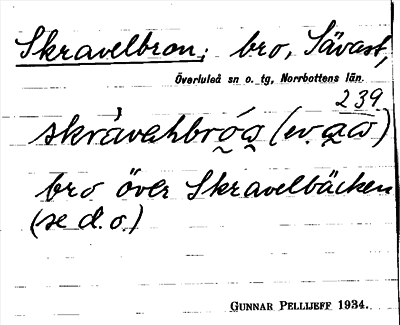 Skravelbron; bro, Sävast,
Överluleå sn o. tg, Norrbottens län.
239
bro över Skravelbäcken
(se d. o.)
GUNNAR PELLIJEFF 1934.